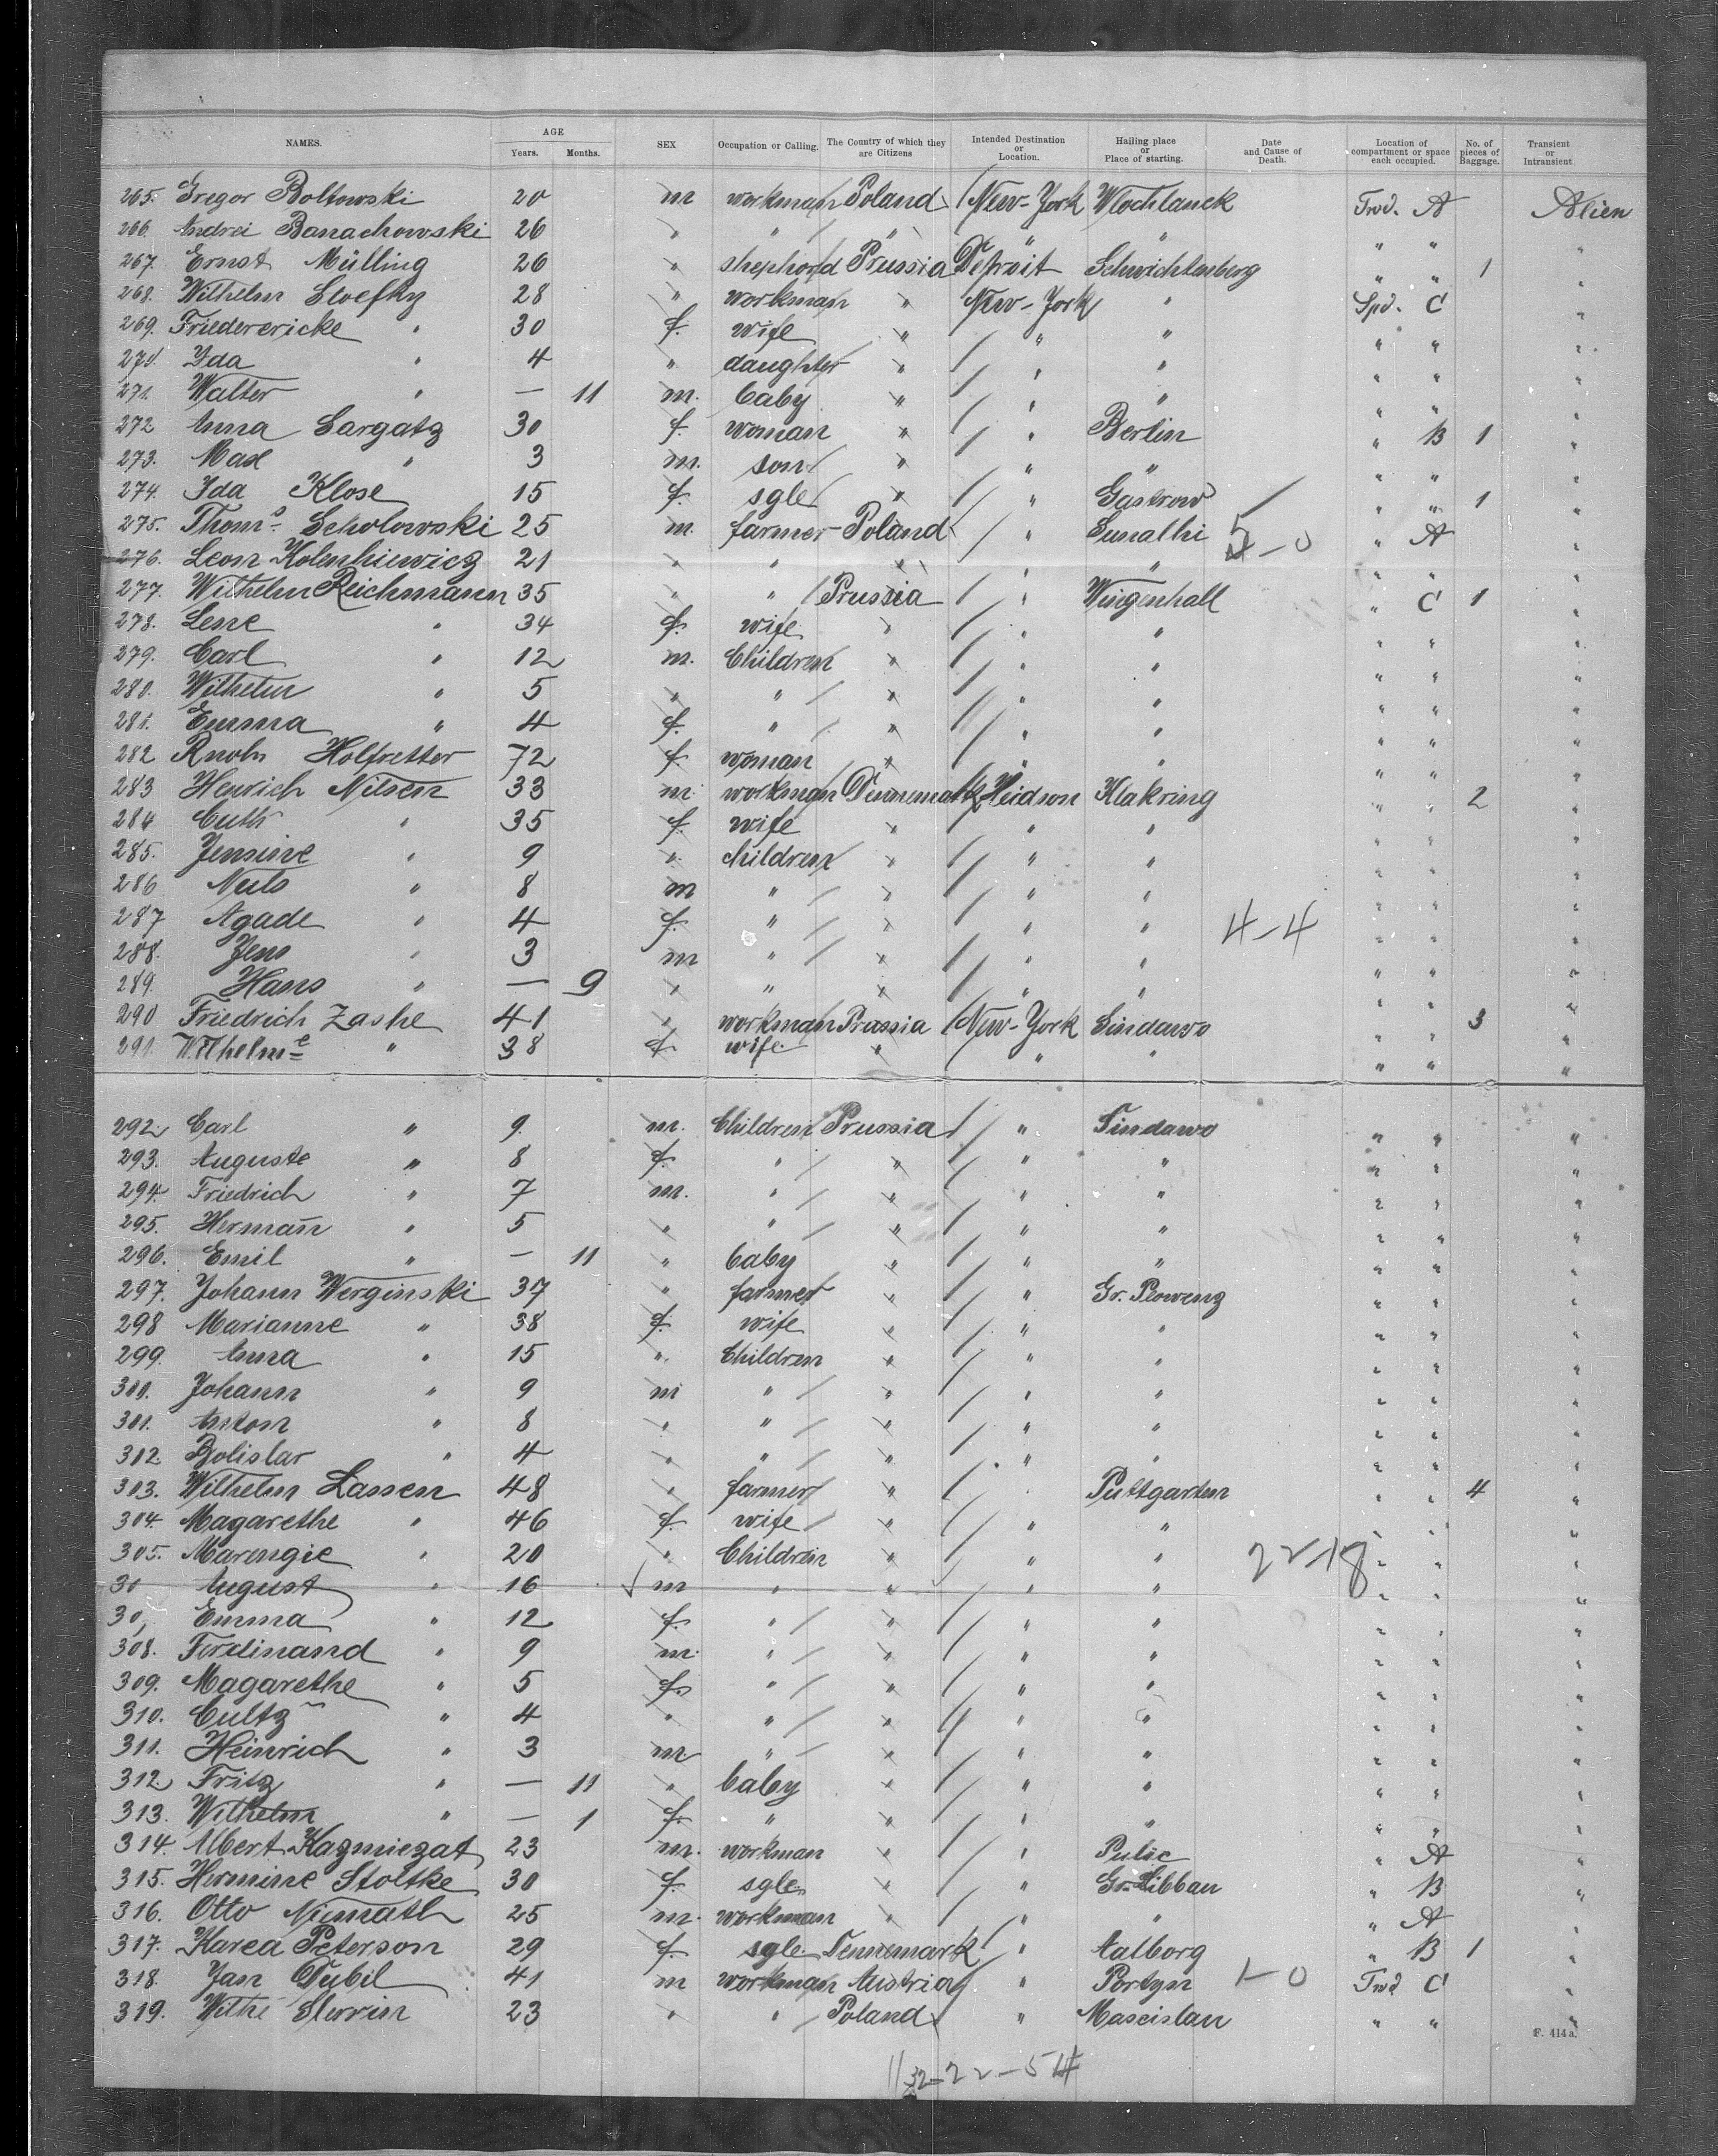 NAMES. AGE Years. Months. SEX Occupation or Calling. The Country of which they are Citizens Intended Destination or Location. Hailing place or Place of starting. Date and Cause of Death. Location of compartment or space each occupied. No. of pieces of Baggage. Transient or Intransient.
265. Gregor Boltowski 20 m workman Poland New-York Wlochlanek Twd. A Alien
266. Andrei Banachowski 26 " " " " " " " "
267. Ernst Mülling 26 " shephord Prussia Detroit Schwichtenberg " " 1 "
268. Wilhelm Stoefky 28 " workman " New-York " Spd. C "
269. Friederericke " 30 f. wife " " " " " "
270. Ida " 4 " daughter " " " " " "
271. Walter " — 11 m. baby " " " " " "
272 Anna Sargatz 30 f. woman " " Berlin " B 1 "
273. Max " 3 m. son " " " " " "
274. Ida Klose 15 f. sgle " " Gastrow " " 1 "
275. Thoms. Scholowski 25 m. farmer Poland " Sunalhi 5-0 " A "
276. Leon Kolenhiewicz 21 " " " " " " " "
277. Wilhelm Reichmann 35 " " Prussia " Wingenhall " C 1 "
278. Lene " 34 f. wife " " " " " "
279. Carl " 12 m. Children " " " " " "
280. Wilhelm " 5 " " " " " " " "
281. Emma " 4 f. " " " " " " "
282 Holfretter 72 f. woman " " " " " "
283 Henrich Nilsen 33 m. workman Dennemark Heidson Klakring " " 2 "
284 Cuth " 35 f. wife " " " " " "
285. Jensine " 9 " children " " " " " "
286 Nuls " 8 m " " " " " " "
287 Agade " 4 f. " " " " 4-4 " " "
288. Jens " 3 m " " " " " " "
289. Hans " — 9 " " " " " " " "
290 Friedrich Zashe 41 " workman Prussia New-York Sindawo " " 3 "
291. Wilhelme " 38 f. wife " " " " " "
292. Carl " 9 m. Children Prussia " Sindawo " " "
293. Auguste " 8 f. " " " " " " "
294. Friedrich " 7 m. " " " " " " "
295. Hermann " 5 " " " " " " " "
296. Emil " — 11 " baby " " " " " "
297. Johann Werginski 37 " farmer " " Gr. Plowenz " " "
298 Marianne " 38 f. wife " " " " " "
299. Anna " 15 " Children " " " " " "
300. Johann " 9 m " " " " " " "
301. Anton " 8 " " " " " " " "
302. Bolislar " 4 " " " " " " " "
303. Wilhelm Lassen 48 " farmer " " Puttgarten " " 4 "
304. Magarethe " 46 f. wife " " " " " "
305. Marengie " 20 " Children " " " 22-18 " " "
30 August " 16 m " " " " " " "
30, Emma " 12 f. " " " " " " "
308. Ferdinand " 9 m. " " " " " " "
309. Magarethe " 5 f. " " " " " " "
310. Cultz " 4 " " " " " " " "
311. Heinrich " 3 m. " " " " " " "
312. Fritz " — 11 " baby " " " " " "
313. Wilhelm " — 1 f. " " " " " " "
314. Albert Kazmiezat 23 m. workman " " Pulic " A "
315. Hermine Stoltke 30 f. sgle " " Gr. Libbau " B "
316. Otto Nimath 25 m. workman " " " " A "
317. Karea Peterson 29 f. sgle. Dennemark " Aalborg " B 1 "
318. Jan Dubil 41 m workman Austria " Portyn 1-0 Twd C "
319. Withe Slerrin 23 " " Poland " Mascislau " " "
F. 414a.
32-22-54